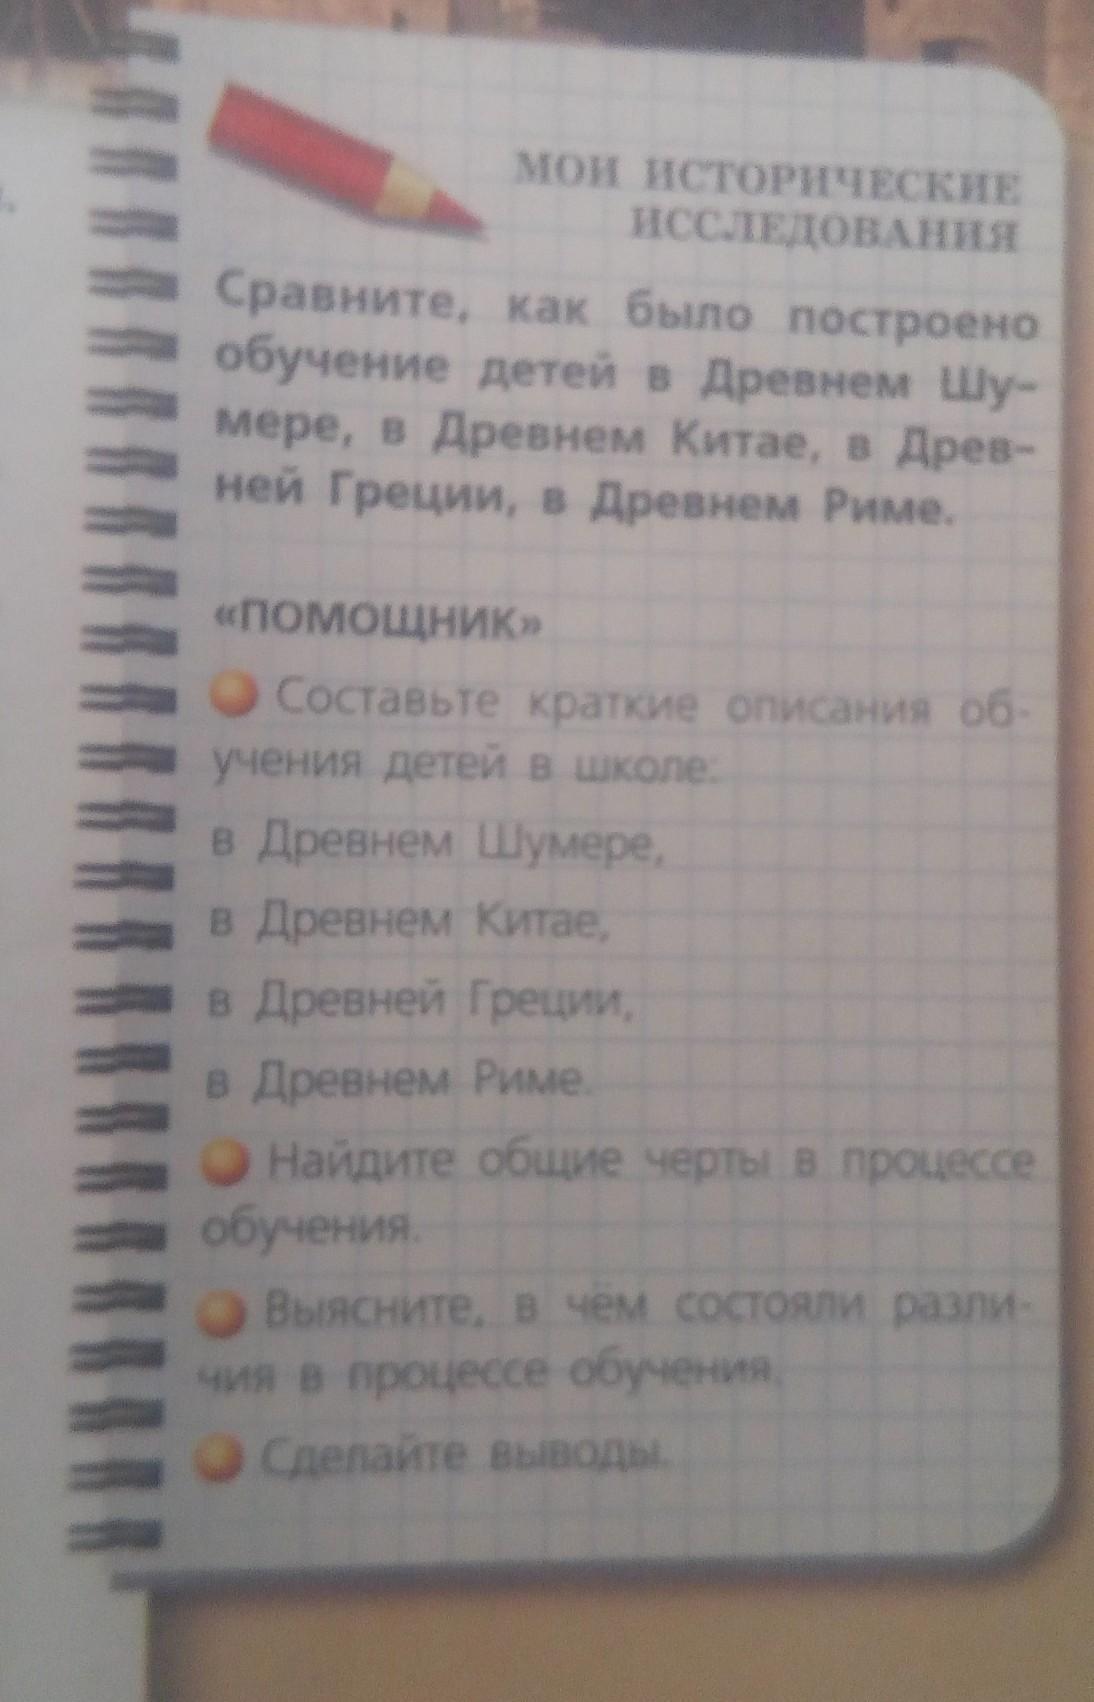 МОИ ИСТОРИЧЕСКИЕ
ИССЛЕДОВАНИЯ
Сравните, как было построено
обучение детей в Древнем Шу-
мере, в Древнем Китае, в Древ-
ней Греции, в Древнем Риме.
«ПОМОЩНИК»
Составьте краткие описания об-
учения детей в школе:
в Древнем Шумере,
в Древнем Китае,
в Древней Греции,
в Древнем Риме.
Найдите общие черты в процессе
обучения.
Выясните, в чём состояли разли-
чия в процессе обучения.
Сделайте выводы.